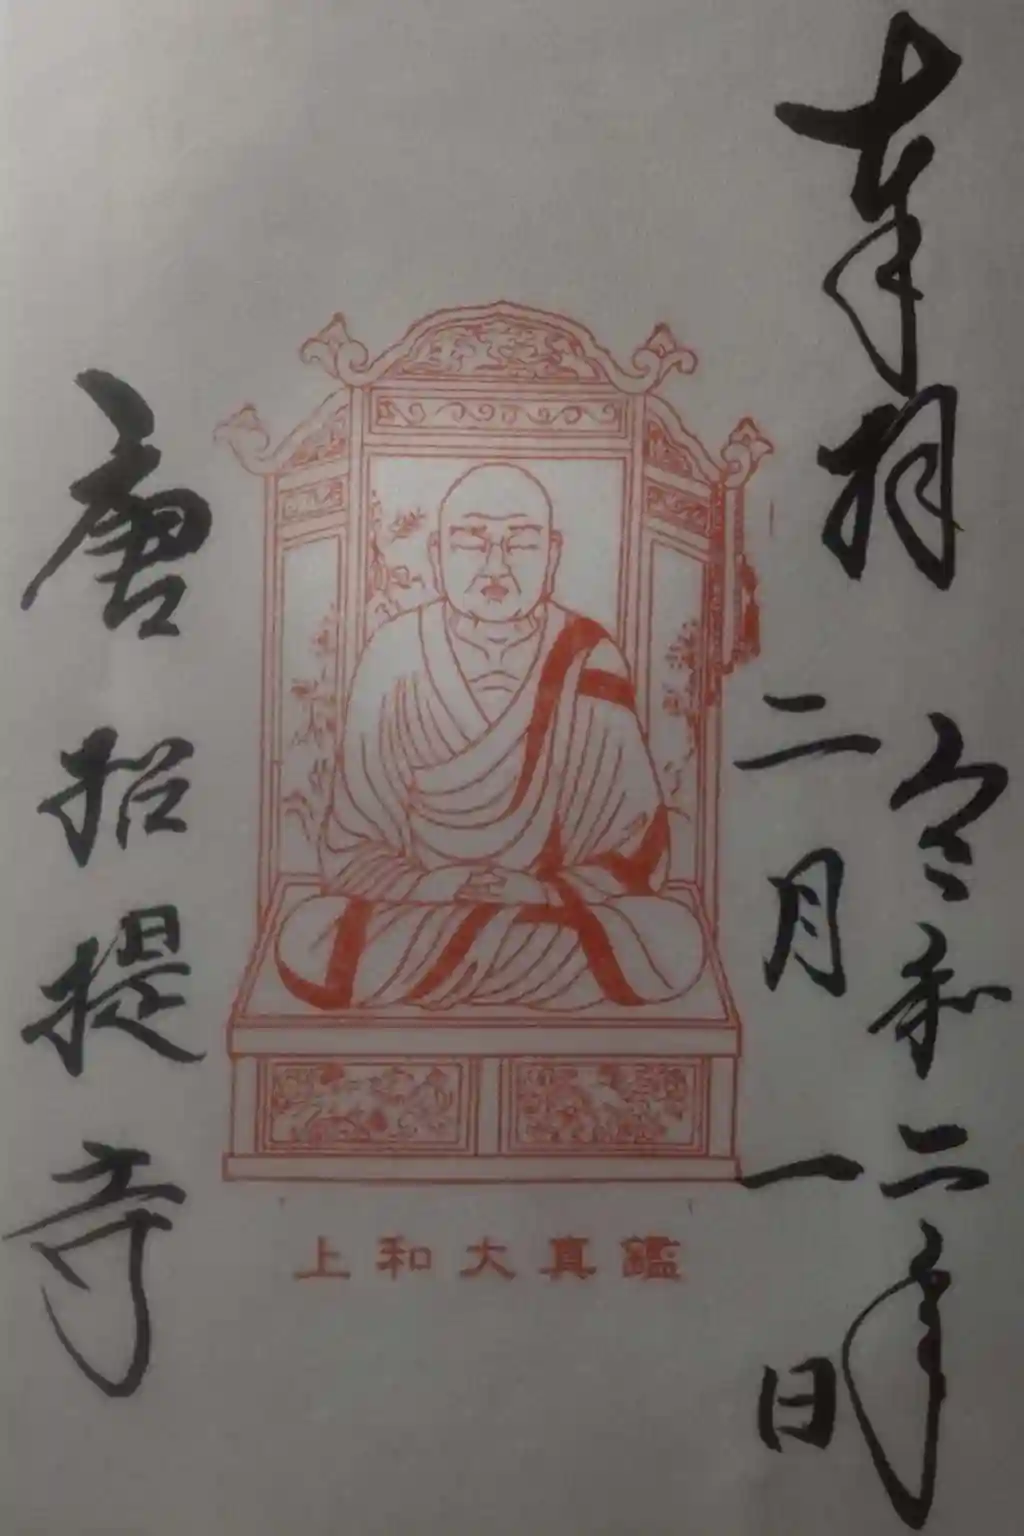 奉拝
令和二年
二月一日
唐招提寺
鑑真大和上